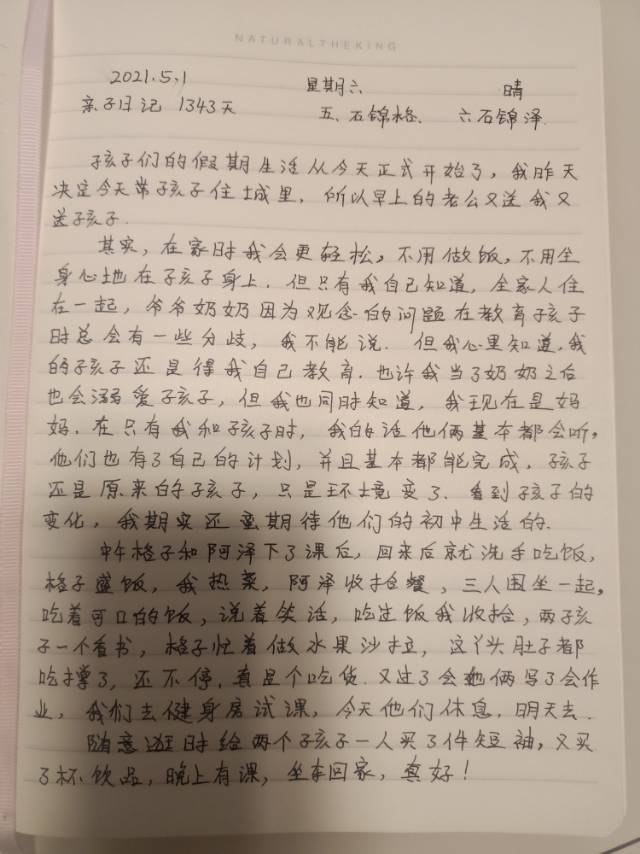 NATURALTHEKING
2021.5.1 星期六 晴
亲子日记 1343天 五、石锦格、 六石锦泽
孩子们的假期生活从今天正式开始了，我昨天
决定今天带孩子住城里，所以早上的老公又送我又
送孩子.
其实，在家时我会更轻松，不用做饭，不用全
身心地在孩子身上.但只有我自己知道，全家人住
在一起，爷爷奶奶因为观念的问题在教育孩子
时总会有一些分歧，我不能说.但我心里知道.我
的孩子还是得我自己教育.也许我当了奶奶之后
也会溺爱孩子，但我也同时知道，我现在是妈
妈.在只有我和孩子时，我的话他俩基本都会听，
他们也有了自己的计划，并且基本都能完成，孩子
还是原来的孩子，只是环境变了.看到孩子的
变化，我期实还蛮期待他们的初中生活的.
中午格子和阿泽下了课后，回来后就洗手吃饭，
格子盛饭，我热菜，阿泽收拾餐，三人围坐一起，
吃着可口的饭，说着笑话，吃过饭我收拾，两孩
子一个看书，格子忙着做水果沙拉，这丫头肚子都
吃撑了，还不停.真是个吃货.又过了会她俩写了会作
业，我们去健身房试课，今天他们休息，明天去.
随意逛时给两个孩子一人买了件短袖，又买
了杯饮品，晚上有课，坐车回家，真好！